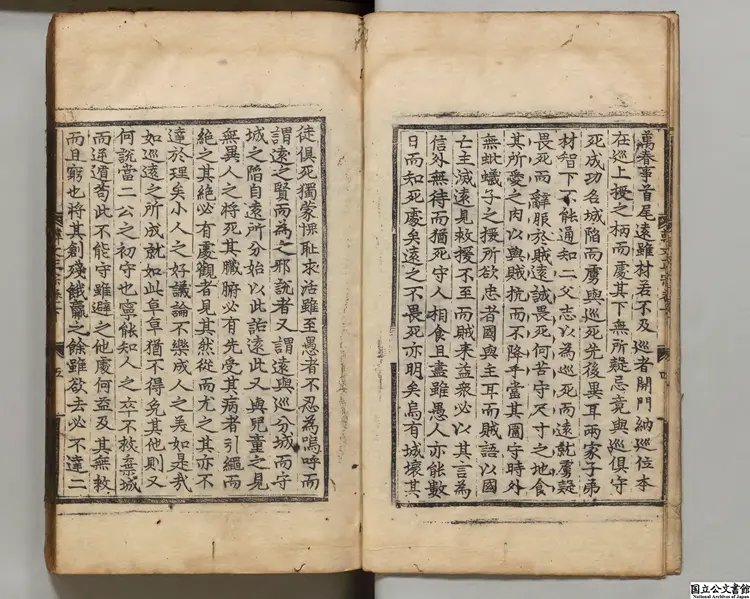 萬春事首尾遠雖材若不及巡者開門納巡位本
在巡上授之柄而處其下無所疑忌竟與巡俱守
死成功名城陷而虜與巡死先後異耳兩家子弟
材智下不能通知二父志以為巡死而遠就虜疑
畏死而辭服於賊遠誠畏死何苦守尺寸之地食
其所愛之肉以與賊抗而不降乎當其圍守時外
無蚍蟻子之援所欲忠者國與主耳而賊語以國
亡主滅遠見救援不至而賊来益衆必以其言為
信外無待而猶死守人相食且盡雖愚人亦能數
日而知死處矣遠之不畏死亦明矣烏有城壞其
徒俱死獨蒙愧耻求活雖至愚者不忍為嗚呼而
謂遠之賢而為之邪說者又謂遠與巡分城而守
城之陷自遠所分始以此詬遠此又與兒童之見
無異人之將死其臟腑必有先受其病者引繩而
絶之其絶必有處觀者見其然從而尤之其亦不
達於理矣小人之好議論不樂成人之美如是哉
如巡遠之所成就如此卓卓猶不得免其他則又
何說當二公之初守也寧能知人之卒不救棄城
而逆遁苟此不能守雖避之他處何益及其無救
而且窮也將其創殘餓羸之餘雖欲去必不達二
五
国立公文書館
National Archives of Japan